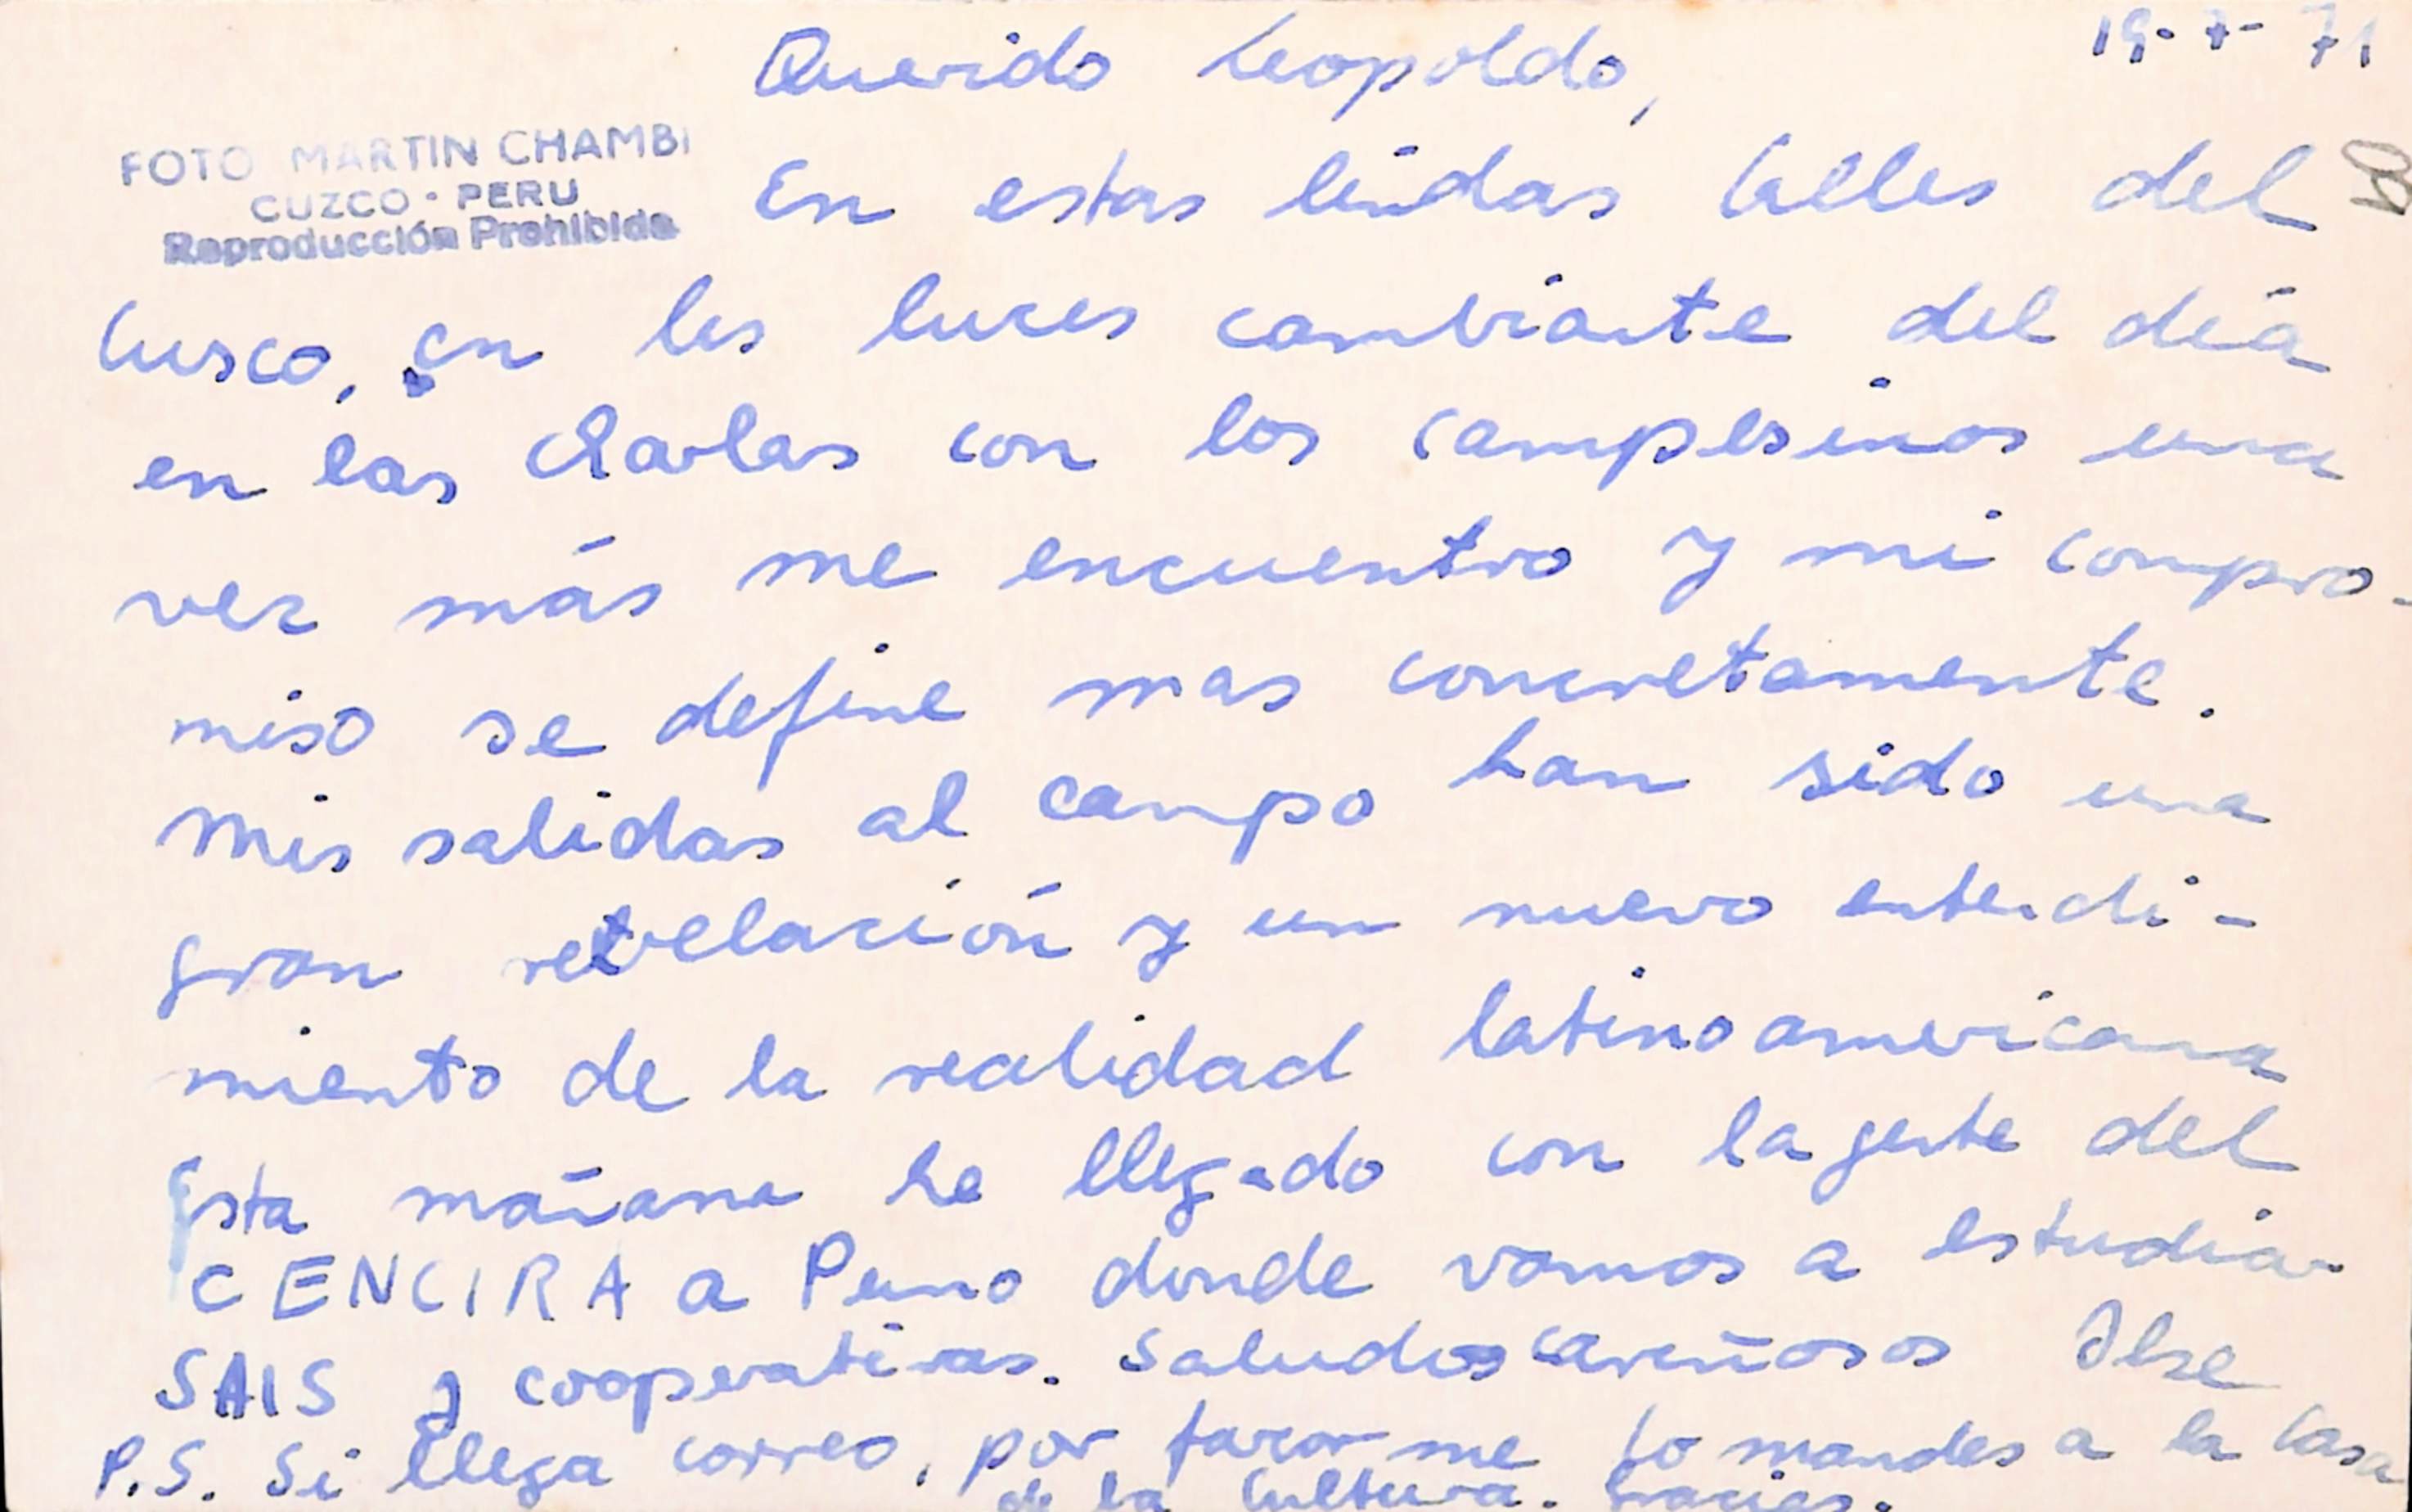 19-7-71
Querido Leopoldo,
FOTO MARTIN CHAMBI
CUZCO - PERU
Reproducción Prohibida
En estas lindas Calles del
Cusco, en las luces cambiante del día
en las charlas con los campesinos una
vez más me encuentro y mi compro-
miso se define mas concretamente.
Mis salidas al campo han sido una
gran revelación y un nuevo entendi-
miento de la realidad latinoamericana
Esta mañana he llegado con la gente del
CENCIRA a Puno donde vamos a estudiar
SAIS y cooperativas. Saludos cariñosos Ilse
P.S. Si llega correo, por favor me lo mandes a la Casa
de la Cultura. Gracias.